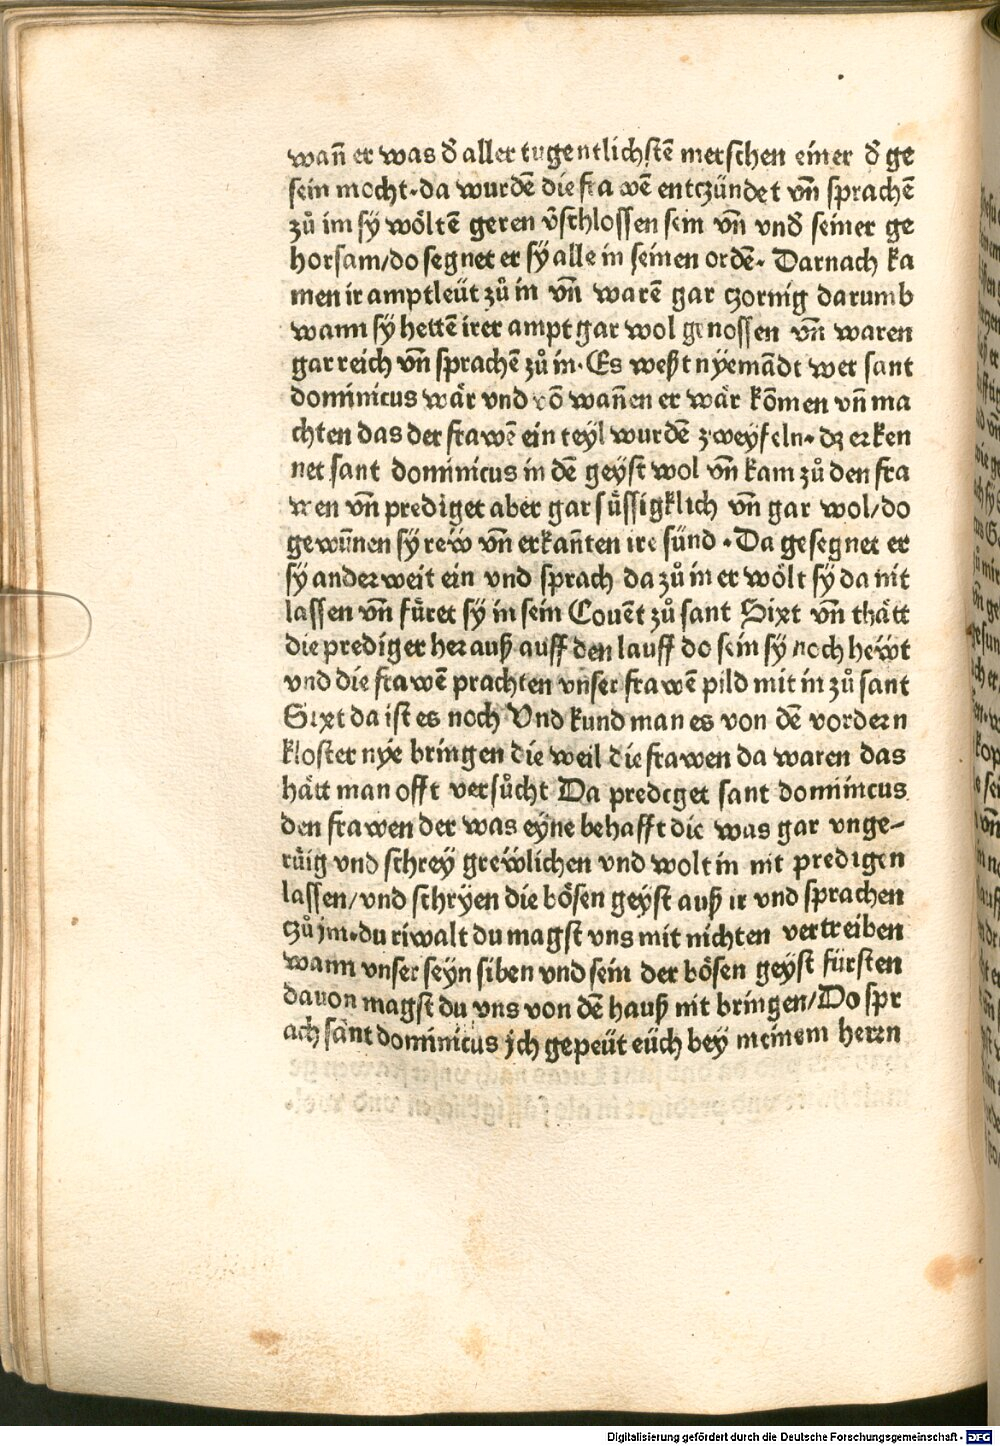 wañ er was đ aller tugentlichstē menschen einer đ ge
sein mocht·da wurdē die frawē entczündet vn̄ sprachē
zů im sy̎ wöltē geren v̄schlossen sein vn̄ vnđ seiner ge
horsam/do segnet er sy̎ alle in seinen ordē· Darnach ka
men ir amptleüt zů in vn̄ warē gar czornig darumb
wann sy̎ hettē irer ampt gar wol genossen vn̄ waren
gar reich vn̄ sprachē zů in·Es weßt ny̎emādt wer sant
dominicus wär vnd vō wañen er wär kōmen vn̄ ma
chten das der frawē ein tey̎l wurdē zwey̎feln· dz erken
net sant dominicus in dē gey̎st wol vn̄ kam zů den fra
wen vn̄ prediget aber gar süssigklich vn̄ gar wol/do
gewūnen sy̎ rew̎ vn̄ erkañten ire sünd ·Da gesegnet er
sy̎ anderweit ein vnd sprach da zů in er wölt sy̎ da nit
lassen vn̄ füret sy̎ in sein Couēt zů sant Sixt vn̄ thätt
die prediger herauß auff den lauff do sein sy̎ noch hew̎t
vnd die frawē prachten vnser frawē pild mit in zů sant
Sixt da ist es noch Vnd kund man es von dē vordern
kloster nye bringen die weil die frawen da waren das
hätt man offt versůcht Da prediget sant dominicus
den frawen der was ey̎ne behafft die was gar vnge-
rüig vnd schrey̎ grew̎lichen vnd wolt in nit predigen
lassen/vnd schry̎en die bösen gey̎st auß ir vnd sprachen
czů jm·du riwalt du magst vns mit nichten vertreiben
wann vnser sey̎n siben vnd sein der bösen gey̎st fürsten
dauon magst du vns von dē hauß nit bringen/Do spr
ach sant dominicus jch gepeüt eüch bey̎ meinem herrn
Digitalisierung gefördert durch die Deutsche Forschungsgemeinschaft - DFG